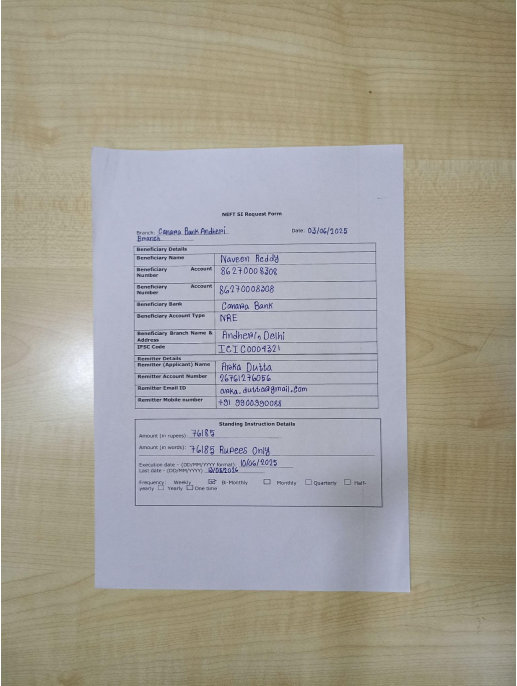 NEFT SI Request Form
Branch: Canara Bank Andheri Date: 03/06/2025
Branch
Beneficiary Details
Beneficiary Name Naveen Reddy
Beneficiary Account Number 86270008308
Beneficiary Account Number 86270008308
Beneficiary Bank Canara Bank
Beneficiary Account Type NRE
Beneficiary Branch Name & Address Andheri, Delhi
IFSC Code ICIC0004321
Remitter Details
Remitter (Applicant) Name Arka Dutta
Remitter Account Number 26761276056
Remitter Email ID arka.dutta@gmail.com
Remitter Mobile number +91 9900390088
Standing Instruction Details
Amount (in rupees) 76185
Amount (in words) 76185 Rupees Only
Execution date – (DD/MM/YYYY format) 10/06/2025
Last date – (DD/MM/YYYY)
Frequency: Weekly Bi-Monthly Monthly Quarterly Half-
yearly Yearly One time